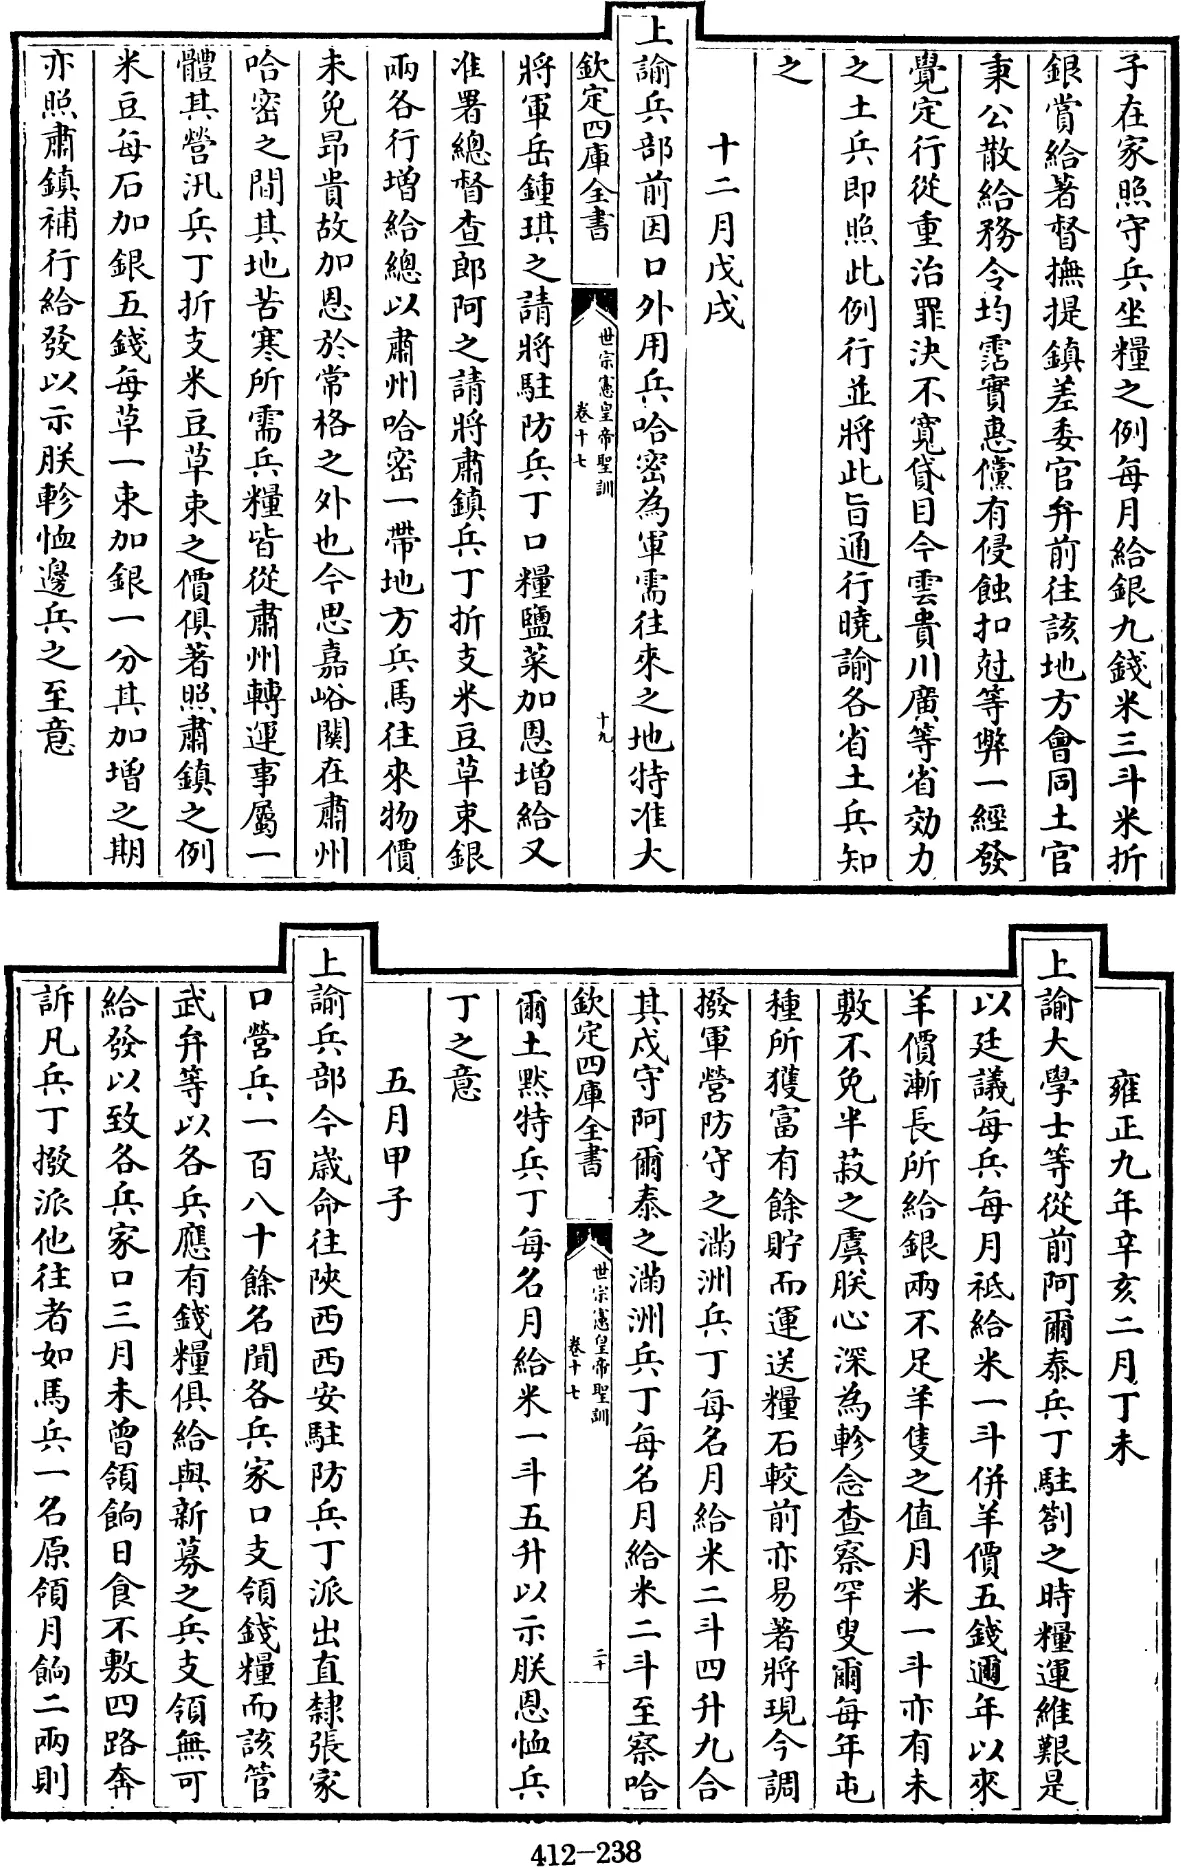 子在家照守兵坐糧之例每月給銀九錢米三斗米折
銀賞給著督撫提鎮差委官弁前往該地方會同土官
秉公散給務令均霑實惠儻有侵蝕扣尅等弊一經發
覺定行從重治罪決不寬貸目今雲貴川廣等省効力
之土兵即照此例行並將此旨通行曉諭各省土兵知
之
十二月戊戌
上諭兵部前因口外用兵哈密為軍需往來之地特准大
欽定四庫全書
世宗憲皇帝聖訓
卷十七
十九
將軍岳鍾琪之請將駐防兵丁口糧鹽菜加恩增給又
准署總督查郎阿之請將肅鎮兵丁折支米豆草束銀
兩各行增給總以肅州哈密一帶地方兵馬往來物價
未免昂貴故加恩於常格之外也今思嘉峪關在肅州
哈密之間其地苦寒所需兵糧皆從肅州轉運事屬一
體其營汛兵丁折支米豆草束之價俱著照肅鎮之例
米豆每石加銀五錢每草一束加銀一分其加增之期
亦照肅鎮補行給發以示朕軫恤邊兵之至意
雍正九年辛亥二月丁未
上諭大學士等從前阿爾泰兵丁駐劄之時糧運維艱是
以廷議每兵每月祗給米一斗併羊價五錢邇年以來
羊價漸長所給銀兩不足羊隻之值月米一斗亦有未
敷不免半菽之虞朕心深為軫念查察罕叟爾每年屯
種所獲富有餘貯而運送糧石較前亦易著將現今調
撥軍營防守之滿洲兵丁每名月給米二斗四升九合
其戍守阿爾泰之滿洲兵丁每名月給米二斗至察哈
欽定四庫全書
世宗憲皇帝聖訓
卷十七
二十
爾土默特兵丁每名月給米一斗五升以示朕恩恤兵
丁之意
五月甲子
上諭兵部今歲命往陝西西安駐防兵丁派出直隸張家
口營兵一百八十餘名聞各兵家口支領錢糧而該管
武弁等以各兵應有錢糧俱給與新募之兵支領無可
給發以致各兵家口三月未曾領餉日食不敷四路奔
訴凡兵丁撥派他往者如馬兵一名原領月餉二兩則
412-238